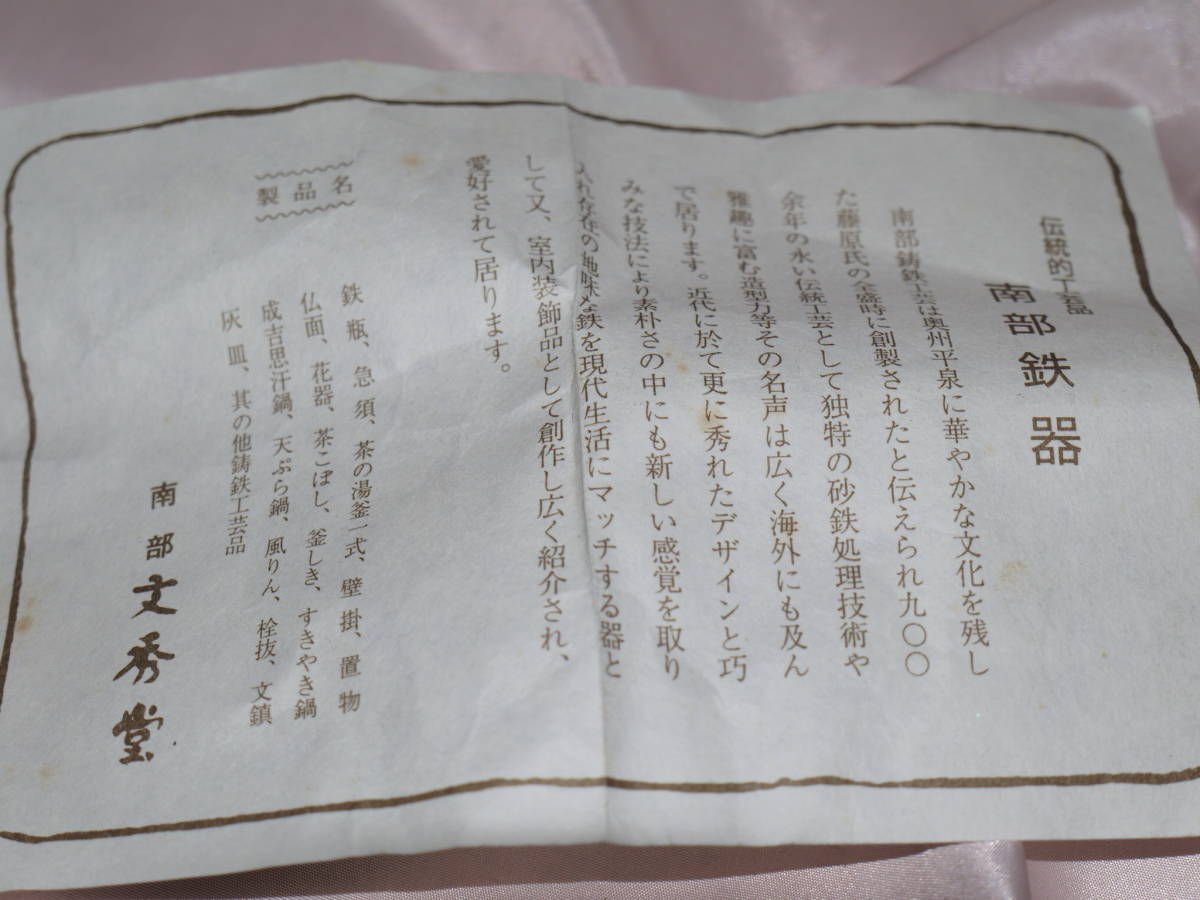 伝統的工芸品
南部鉄器
南部鋳鉄工芸は奥州平泉に華やかな文化を残し
た藤原氏の全盛時に創製されたと伝えられ九〇〇
余年の永い伝統工芸として独特の砂鉄処理技術や
雅趣に富む造型力等その名声は広く海外にも及ん
で居ります。近代に於て更に秀れたデザインと巧
みな技法により素朴さの中にも新しい感覚を取り
入れ存作の地味な鉄を現代生活にマッチする器と
して又、室内装飾品として創作し広く紹介され、
愛好されて居ります。
製品名
鉄瓶、急須、茶の湯釜一式、壁掛、置物
仏面、花器、茶こぼし、釜しき、すきやき鍋
成吉思汗鍋、天ぷら鍋、風りん、栓抜、文鎮
灰皿、其の他鋳鉄工芸品
南部文秀堂